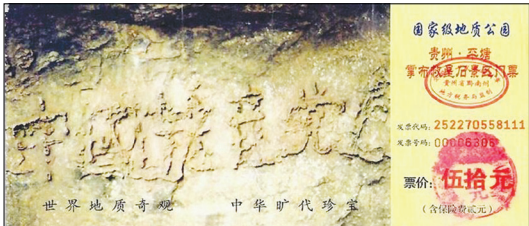 中國共产党亡
世界地质奇观 中华旷代珍宝
国家级地质公园
贵州·平塘
掌布救星石景区门票
贵州省黔南州
发票代码: 252270558111
发票号码: 00006306
票价: 伍拾元
(含保险费贰元)